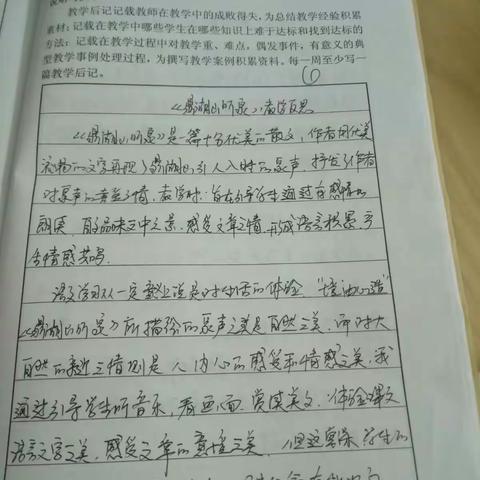 教学后记记载教师在教学中的成败得失，为总结教学经验积累
素材；记载在教学中哪些学生在哪些知识上难于达标和找到达标的
方法；记载在教学过程中对教学重、难点，偶发事件，有意义的典
型教学事例处理过程，为撰写教学案例积累资料。每一周至少写一
篇教学后记。
①
《鼎湖山听泉》教学反思
《鼎湖山听泉》是一篇十分优美的散文，作者用优美
流畅的文字再现了鼎湖山引人入胜的泉声，抒发了作者
对泉声的喜爱之情。教学时，旨在引导学生通过有感情的
朗读，品味文中之景，感受文章之情，形成语言积累，产
生情感共鸣。
语文学习从一定意义上说是对生活的体验，"境由心造"
《鼎湖山听泉》所描绘的泉声之美是自然之美，而对大
自然的亲近之情则是人内心的感受和情感之美，我
通过引导学生听音乐，看画面，赏读美文，体验课文
语言文字之美，感受文章的意境之美，但这篇 学生的